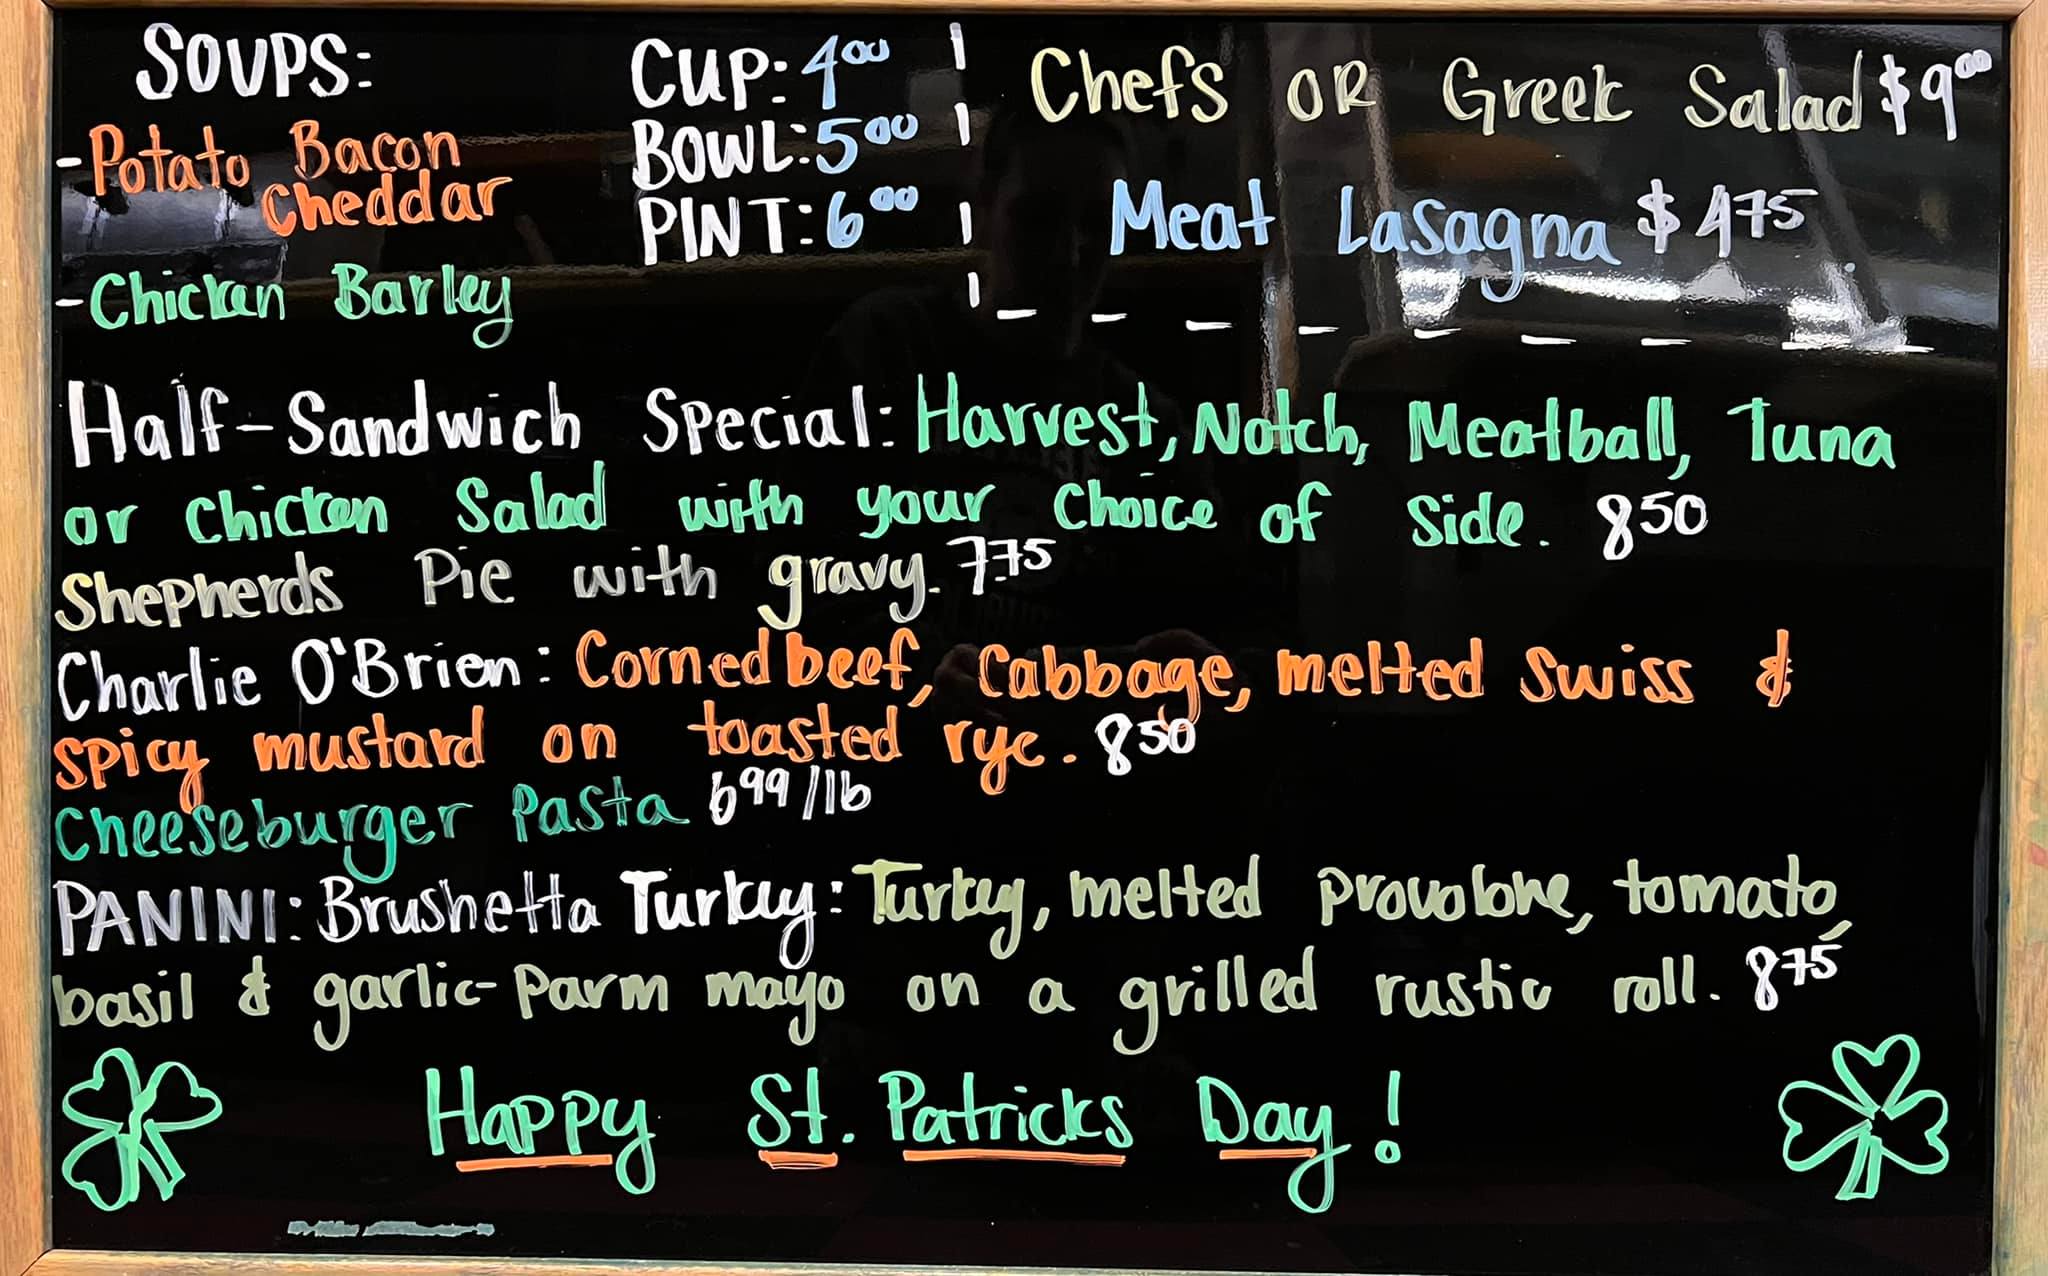 SOUPS:
- Potato Bacon
Cheddar
- Chicken Barley
CUP: 4⁰⁰
BOWL: 5⁰⁰
PINT: 6⁰⁰
Chefs OR Greek Salad $9⁰⁰
Meat Lasagna $4⁷⁵
Half-Sandwich Special: Harvest, Notch, Meatball, Tuna
or Chicken Salad with your Choice of Side. 8⁵⁰
Shepherds Pie with gravy. 7.75
Charlie O'Brien: Corned beef, Cabbage, melted Swiss &
spicy mustard on toasted rye. 8⁵⁰
Cheeseburger Pasta 6⁹⁹/lb
PANINI: Brushetta Turkey: Turkey, melted provolone, tomato,
basil & garlic-parm mayo on a grilled rustic roll. 8⁷⁵
Happy St. Patricks Day!